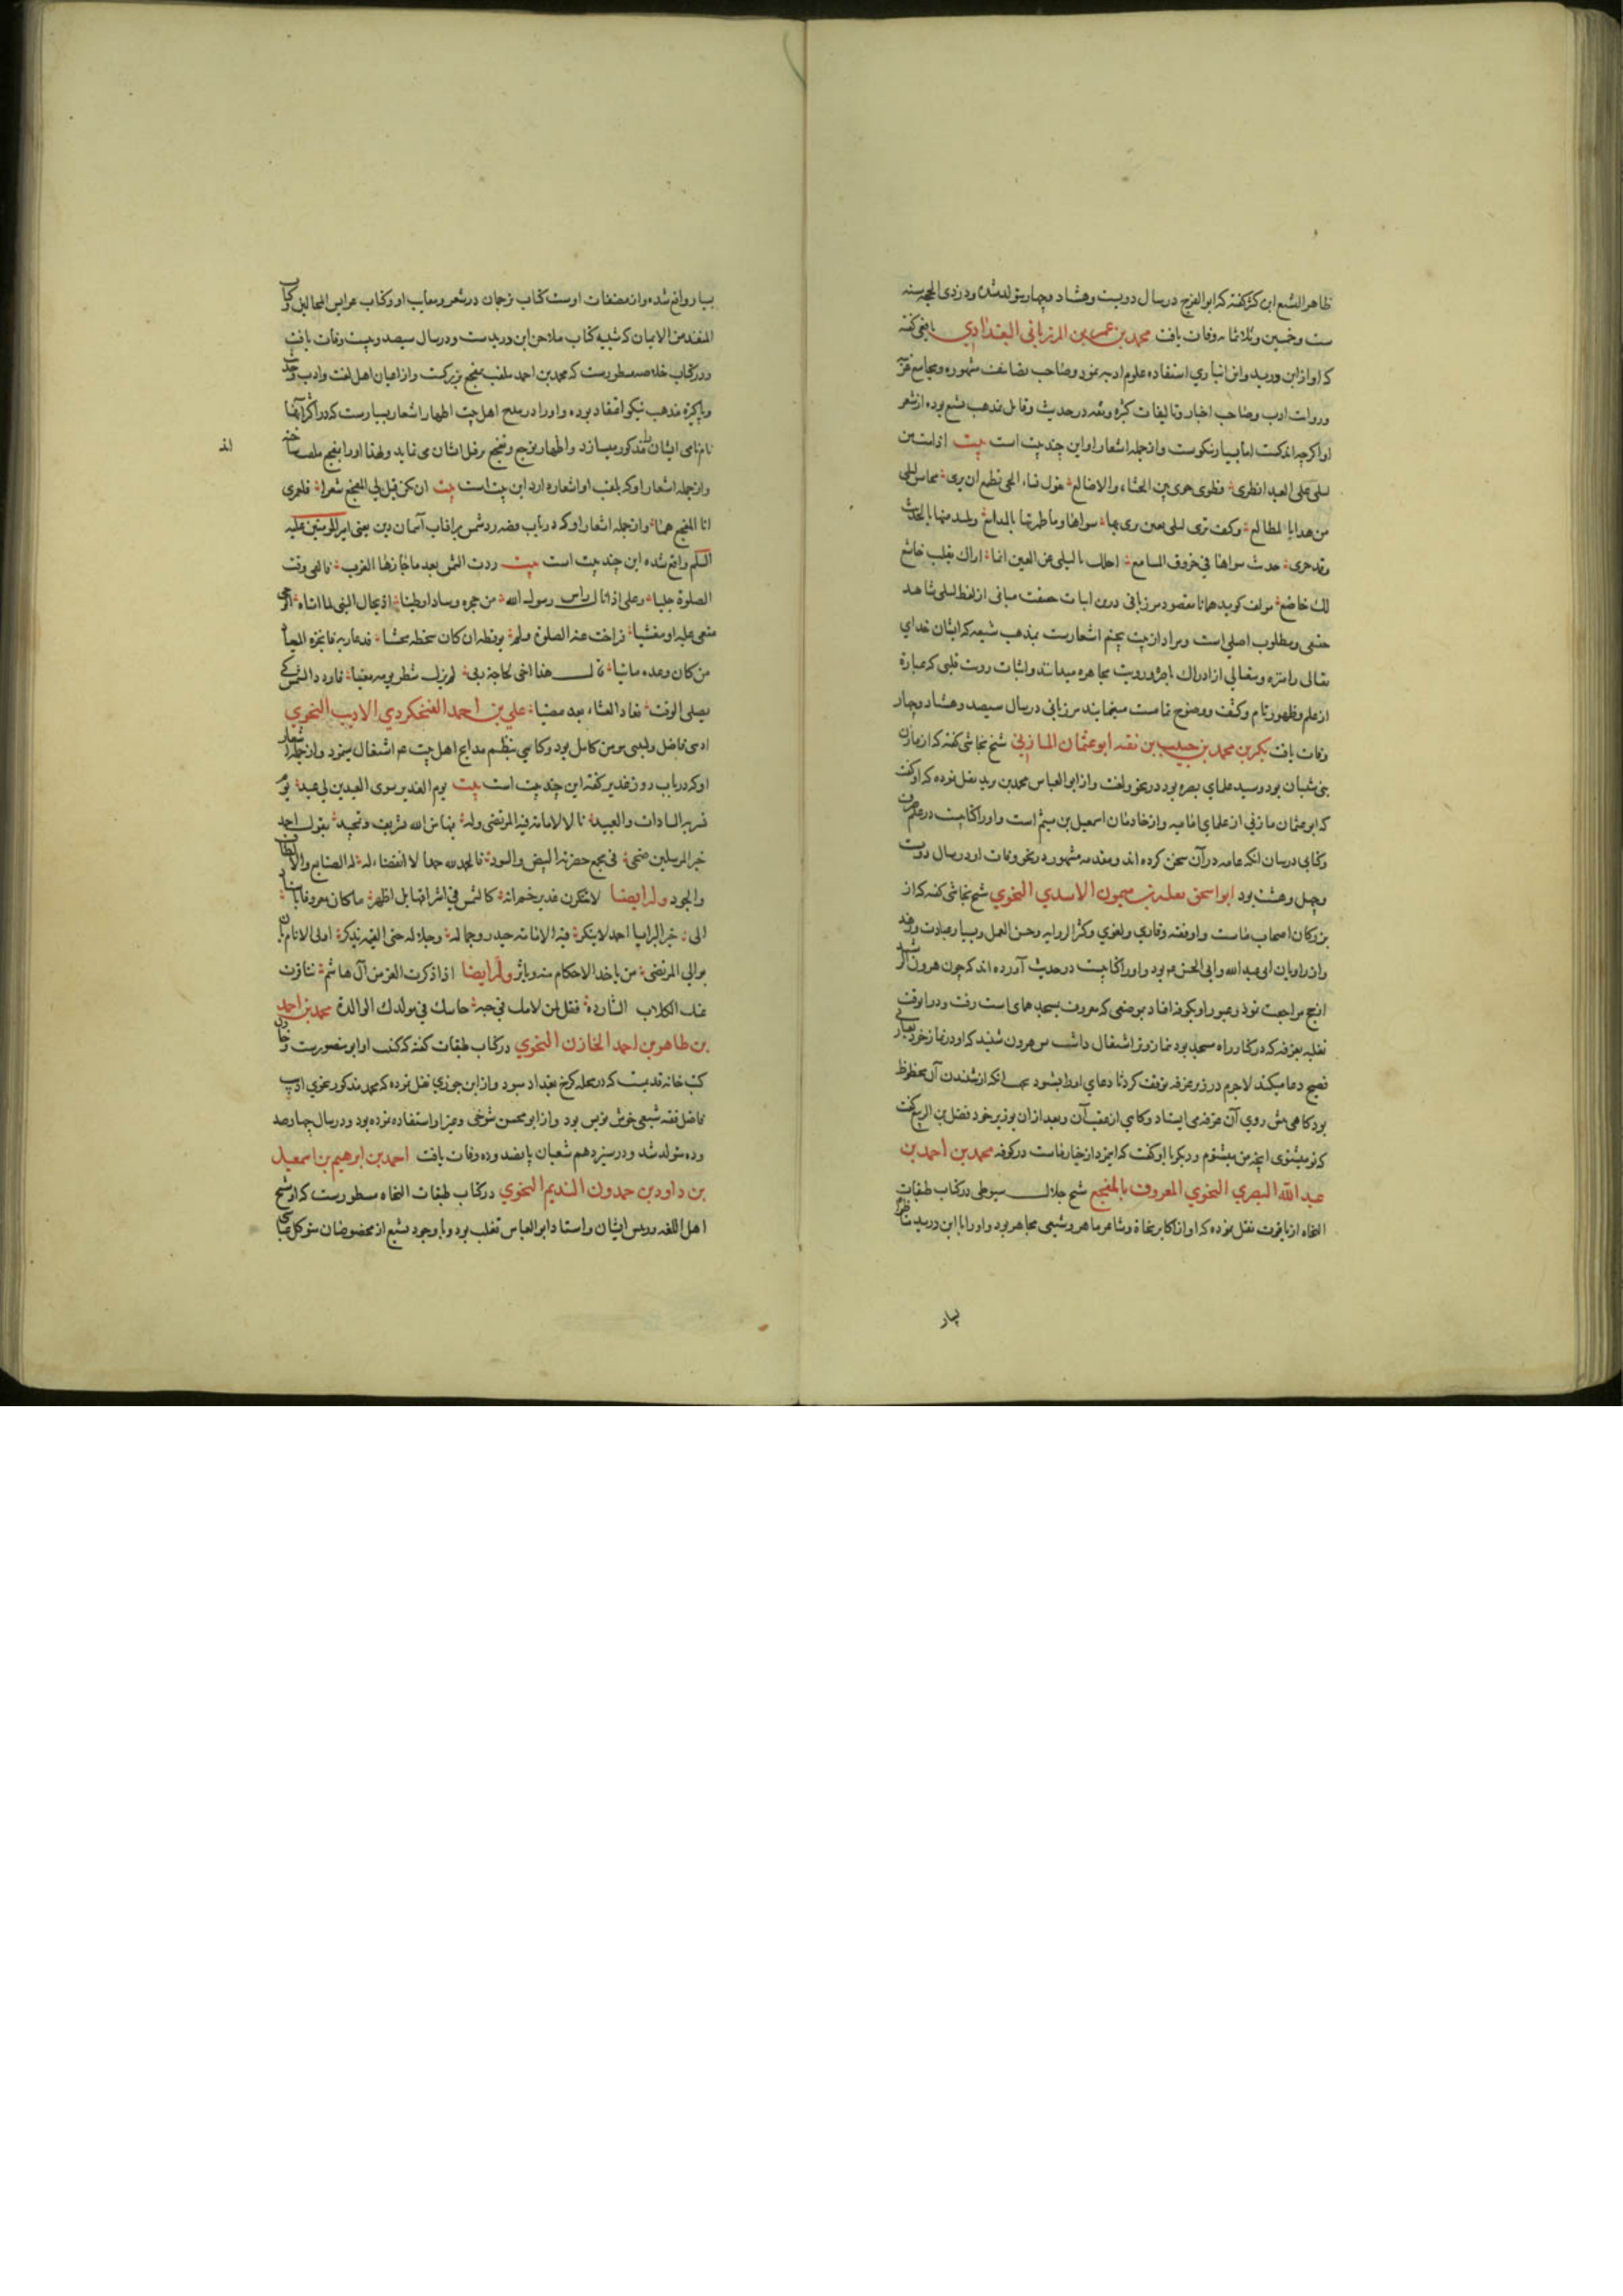 ظاهر التشیع ابن کثیر گفته که ابو الفرج در سال دویست و هشتاد و چهار متولد شد و در ذی الحجه سنه
ست و خمسین و ثلاثمائه وفات یافت محمد بن عمر بن المرزبانی البغدادی یافعی گفته
که او از ابن درید و ابن انباری استفاده علوم ادبیه نموده و صاحب تصانیف مشهوره و مجامیع
و روات ادب و صاحب اخبار و تالیفات کثیره و ثقه در حدیث و قایل بمذهب تشیع بوده از شعر
او اگرچه اندکست اما بسیار نیکوست و از جمله اشعار او این چند بیت است بیت
لیلی علی العبد انظری و نظری هوی بین الحشاء و الاضالع تقول نساء الحی تطمع ان تری محاسن لیلی
من هدایا المطالع و کیف تری لیلی بعین تری بها سواها و ما طهرتها بالمدامع و تلتذ منها بالحدیث
و قد جری حدیث سواها فی خروق المسامع اجلک یا لیلی عن العین انما اراک بقلب خاشع
لک خاضع مولف گوید همانا مقصود مرزبانی درین ابیات از لفظ لیلی شاهد
حقیقی و مطلوب اصلی است و مراد از بیت پنجم اشعاریست بمذهب شیعه که ایشان خدای
تعالی را منزه و متعالی از ادراک باصره و رویت مجاهره میدانند و اثبات رویت قلبی که عبارة
از علم و ظهور تام و کشف و وضوح تمامست مینمایند مرزبانی در سال سیصد و هشتاد و چهار
وفات یافت بکر بن محمد بن حبیب بن بقیه ابو عثمان المازنی شیخ نجاشی گفته که از مازن
بنی شیبان بود و سید علمای بصره بود در نحو و لغت و از ابو العباس محمد بن یزید نقل نموده که او گفت
که ابو عثمان مازنی از علمای امامیه و از خادمان اسمعیل بن میثم است و او را کتابیست در علم صرف
و کتابی در بیان آنکه عامه در آن سخن کرده اند و مقدمه مشهور در نحو وفات او در سال دویست
و چهل و هشت بود ابو اسحق ثعلبه بن میمون الاسدی النحوی شیخ نجاشی گفته که از
بزرکان اصحاب ماست و او فقیه و قاری و لغوی و کثیر الروایه و حسن العمل و بسیار عبادت و زهد
و از راویان ابی عبد الله و ابی الحسن بود و او را کتابیست در حدیث آورده اند که چون هرون الرشید
از حج مراجعت نمود و عبور او بکوفه افتاد بموضعی که معروف بمسجد سماک است رفت و در آنوقت
ثعلبه بغرفه که در کنار راه مسجد بود نماز وتر اشتغال داشت پس هرون شنید که او در نماز خود بعبارت
فصیح دعا میکند لاجرم در زیر غرفه توقف کرد تا دعای او را بشنود بعد از آنکه از شنیدن آن محظوظ
بود کاهی پیش روی آن غرفه می ایستاد و کاهی از عقب آن و بعد از آن بوزیر خود فضل بن الربیع گفت
که تو میشنوی آنچه من میشنوم و دیگر با او گفت که این مرد از خیار ماست در کوفه محمد بن احمد بن
عبد الله البصری النحوی المعروف بالمفجع شیخ جلال سیوطی در کتاب طبقات
النحاه از یاقوت نقل نموده که او از اکابر نحاة و شاعر ماهر و شیعی مجاهر بود و او را با ابن درید
بسیار
بسیار واقع شده و از مصنفات اوست کتاب ترجمان در شعر و معایب او و کتاب عرایس المجالس و کتاب
المنقذ من الایمان که شبیه کتاب ملاحن ابن درید است و در سال سیصد و بیست وفات یافت
و در کتاب خلاصه مسطورست که محمد بن احمد ملقب بمفجع بزرگست و از اعیان اهل لغت و ادب و حدیث
و پاکیزه مذهب نیکو اعتقاد بوده و او را در مدح اهل بیت اطهار اشعار بسیارست که در اکثر آنها
نام نامی ایشان مذکور میسازد و اظهار توجع و تفجع بر قتل ایشان می نماید و لهذا او را بمفجع ملقب ساخته اند
و از جمله اشعار او که بلقب او اشعاره دارد این بیت است بیت ان یکن قیل لی المفجع شعرا فلعمری
انا المفجع هما و از جمله اشعار او که در باب قصه رد شمس بر آفتاب آسمان دین یعنی امیر المومنین علیه
السلم واقع شده این چند بیت است بیت ردت الشمس بعد ما حازها الغرب وقت
الصلوة جلیا رسول الله من حجره وسادا وطیا
مغمی علیه او مغشیا فراحت عنه الصلوة فلم یوقظه ان کان سخطه یخشا فدعا ربه فانجزه المیعاد
من کان وعده ماتیا قال هذا اخی لحاجة ربی لم یزل شطر یومه معنیا فاردد الشمس کی
یصلی الوقت فعاد العشاء بعد مضیا علی بن احمد الفنجکردی الادیب النحوی
ادیبی فاضل و لبیبی مومن کامل بود و کاهی بنظم مدایح اهل بیت عم اشتغال مینمود و از جمله اشعار
او که در باب روز غدیر گفته این چند بیت است بیت یوم الغدیر سوی العیدین لی عید یوم
تسر به السادات والعبید نال الامامة فیه المرتضی وله بها من الله تشریف وتمجید بقول احمد
خیر المرسلین ضحی فی مجمع حضرته البیض والسود فالحمد لله حمدا لا انقضاء له له الصنایع والالطاف
والجود وله ایضا لا تنکرن غدیر خم انه کالشمس فی اشراقها بل اظهر ما کان معروفا باسناد
الی خیر البرایا احمد لا ینکر فیه الامامة حیدر وجماله وجلاله حتی القیامة یذکر اولی الانام بان
یوالی المرتضی من یاخذ الاحکام منه ویاثر وله ایضا اذا ذکرت الغر من آل هاشم تنافرت
عنک الکلاب الشارده فقل لمن لامک فی حبه خانتک فی مولدک الوالدة محمد بن احمد
بن طاهر بن احمد الخازن النحوی در کتاب طبقات گفته که کنیت او ابو منصورست و خازن
کتب خانه قدیمست که در محله کرخ بغداد بود و از ابن جوزی نقل نموده که محمد مذکور نحوی ادیب
فاضل فقیه شیعی خوش نویس بود و از ابو محسن تنوخی و غیر او استفاده نموده بود و در سال چهارصد
و ده متولد شد و در سیزدهم شعبان پانصد و ده وفات یافت احمد بن ابرهیم بن اسمعیل
بن داود بن حمدون الندیم النحوی در کتاب طبقات النحاه مسطورست که او شیخ
اهل اللغه و رییس ایشان و استاد ابو العباس ثعلب بود و با وجود تشیع از مخصوصان متوکل عباسی